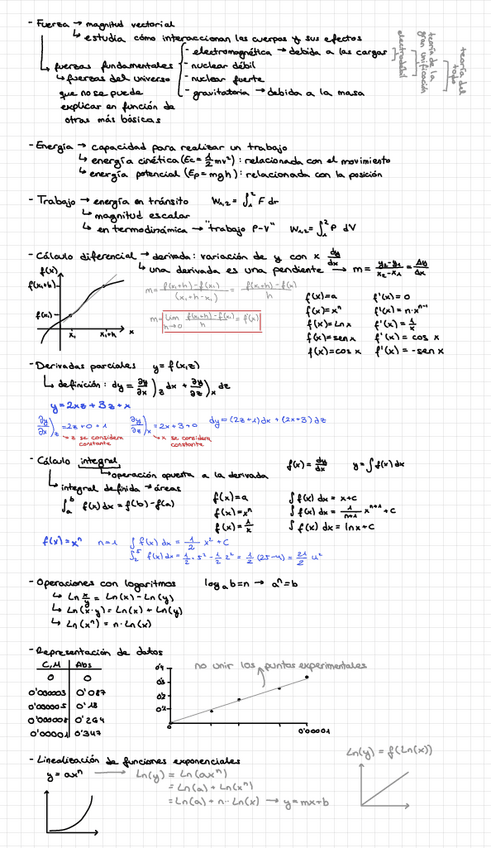 - Fuerza → magnitud vectorial
↳ estudia cómo interaccionan los cuerpos y sus efectos
↳ fuerzas fundamentales
- electromagnética → debida a las cargas
- nuclear débil
- nuclear fuerte
- gravitatoria → debida a la masa
electrodébil
teoría de la gran unificación
teoría del todo
↳ fuerzas del universo
que no se puede
explicar en función de
otras más básicas
- Energía → capacidad para realizar un trabajo
↳ energía cinética (Ec = 1/2 mv²) : relacionada con el movimiento
↳ energía potencial (Ep = mgh) : relacionada con la posición
- Trabajo → energía en tránsito W₁,₂ = ∫₁² F dr
↳ magnitud escalar
↳ en termodinámica → "trabajo P-V" W₁,₂ = ∫₁² P dV
- Cálculo diferencial → derivada: variación de y con x dy/dx
↳ una derivada es una pendiente → m = (y₂-y₁)/(x₂-x₁) = Δy/Δx
f(x)
f(x₁+h)
f(x₁)
x₁ x₁+h x
m = (f(x₁+h) - f(x₁))/(x₁+h-x₁) = (f(x₁+h) - f(x))/h
m = lim h→0 (f(x₁+h) - f(x₁))/h = f(x)
f(x)=a f'(x) = 0
f(x)=xⁿ f'(x) = n·xⁿ⁻¹
f(x)=Ln x f'(x) = 1/x
f(x)=sen x f'(x) = cos x
f(x)=cos x f'(x) = -sen x
- Derivadas parciales y = f(x,z)
↳ definición: dy = ∂y/∂x)z dx + ∂y/∂z)x dz
y = 2xz + 3z + x
∂y/∂x)z = 2z + 0 + 1 ∂y/∂z)x = 2x + 3 + 0 dy = (2z+1)dx + (2x+3)dz
→ z se considera constante
→ x se considera constante
- Cálculo integral f(x) = dy/dx y = ∫ f(x) dx
↳ operación opuesta a la derivada
↳ integral definida → áreas
∫ₐᵇ f(x) dx = f(b) - f(a)
f(x)=a ∫ f(x) dx = x+C
f(x)=xⁿ ∫ f(x) dx = 1/(n+1) xⁿ⁺¹ + C
f(x)=1/x ∫ f(x) dx = ln x + C
f(x) = xⁿ n=1 ∫ f(x) dx = 1/2 x² + C
∫₂⁵ f(x) dx = 1/2 · 5² - 1/2 2² = 1/2 (25-4) = 21/2 u²
- Operaciones con logaritmos logₐ b = n → aⁿ = b
↳ Ln x/y = Ln(x) - Ln(y)
↳ Ln(x·y) = Ln(x) + Ln(y)
↳ Ln(xⁿ) = n·Ln(x)
- Representación de datos
C, M Abs
0 0
0'000003 0'087
0'000005 0'18
0'000008 0'264
0'00001 0'347
no unir los puntos experimentales
0'4
0'3
0'2
0'1
0
0'00001
- Linealización de funciones exponenciales
y = axⁿ → Ln(y) = Ln(axⁿ)
= Ln(a) + Ln(xⁿ)
= Ln(a) + n·Ln(x) → y = mx+b
Ln(y) = f(Ln(x))